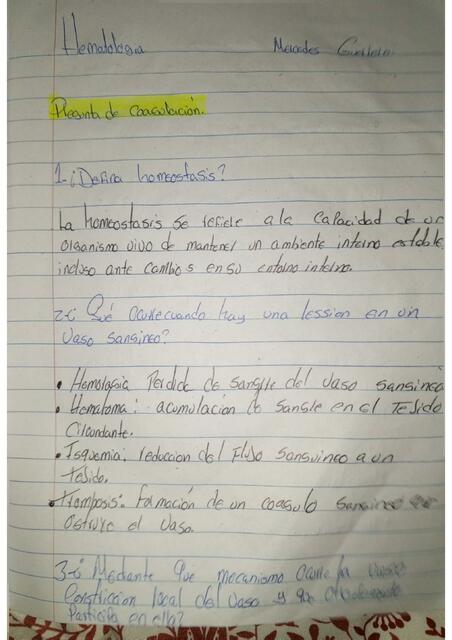 Hematologia Mercedes
Pregunta de Coagulación.
1-¿Defina homeostasis?
La homeostasis se refiere a la capacidad de un
organismo vivo de mantener un ambiente interno estable,
incluso ante cambios en su entorno interno.
2-¿ Qué ocurre cuando hay una lession en un
Vaso Sansineo?
• Hemolagia Perdida de sangre del Vaso sansineo
• Hematoma: acumulación de sangre en el Tejido
Cilcundante.
• Isquemia: reduccion del Flujo Sanguineo a un
Tejido.
• tromposis: Formación de un coagulo sansineo que
Ostruye el Vaso.
3-¿ Mediante que mecanismo ocurre la
Constriccion local del Vaso y que
Participa en ella?